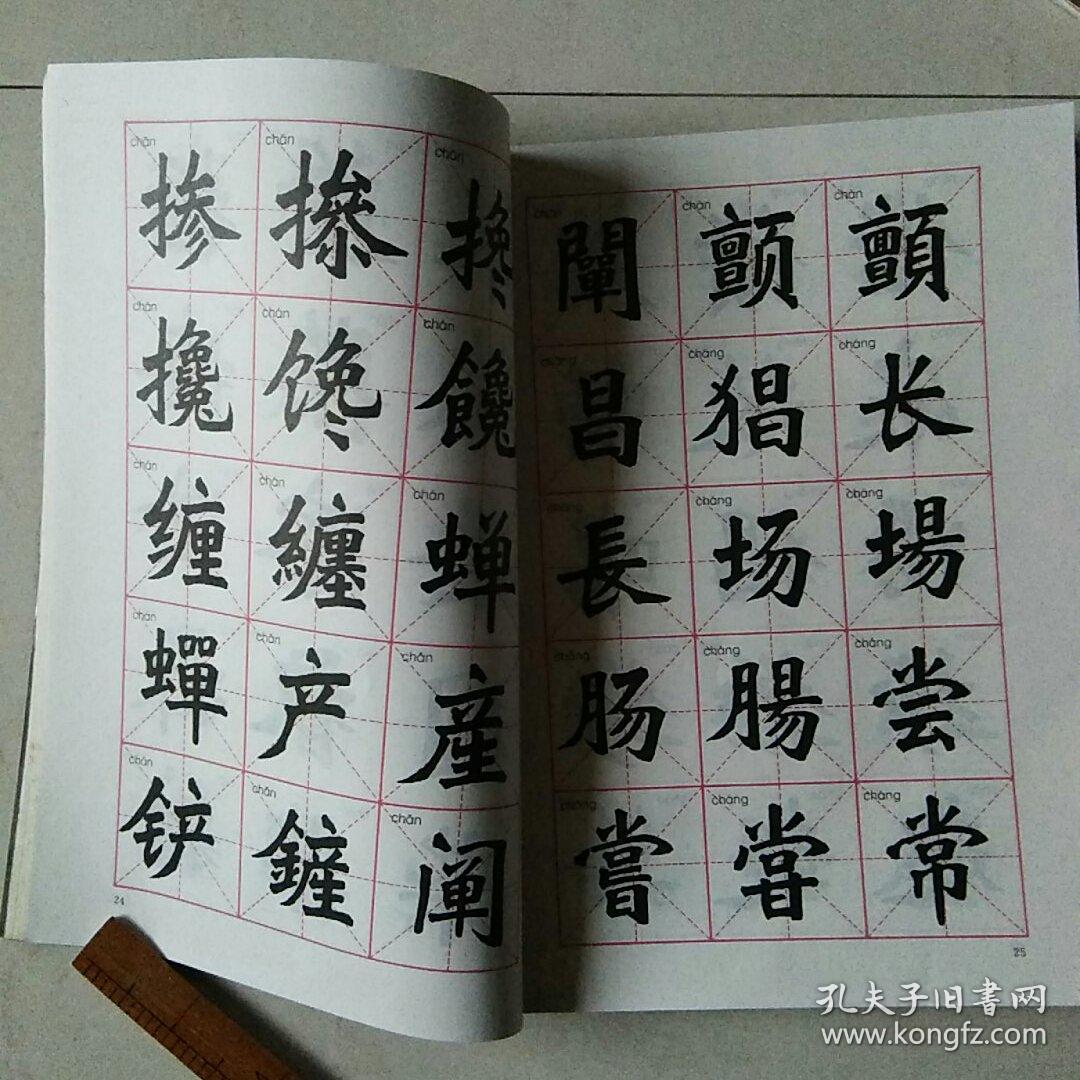 chān chān chān
掺 摻 搀
chān chán chán
攙 馋 饞
chán chán chán
缠 纏 蝉
chán chǎn chǎn
蟬 产 産
chǎn chǎn chǎn
铲 鏟 阐
24
chǎn chàn chàn
闡 颤 顫
chāng chāng cháng
昌 猖 长
cháng cháng cháng
長 场 場
cháng cháng cháng
肠 腸 尝
cháng cháng cháng
嘗 甞 常
25
孔夫子旧書网
www.kongfz.com